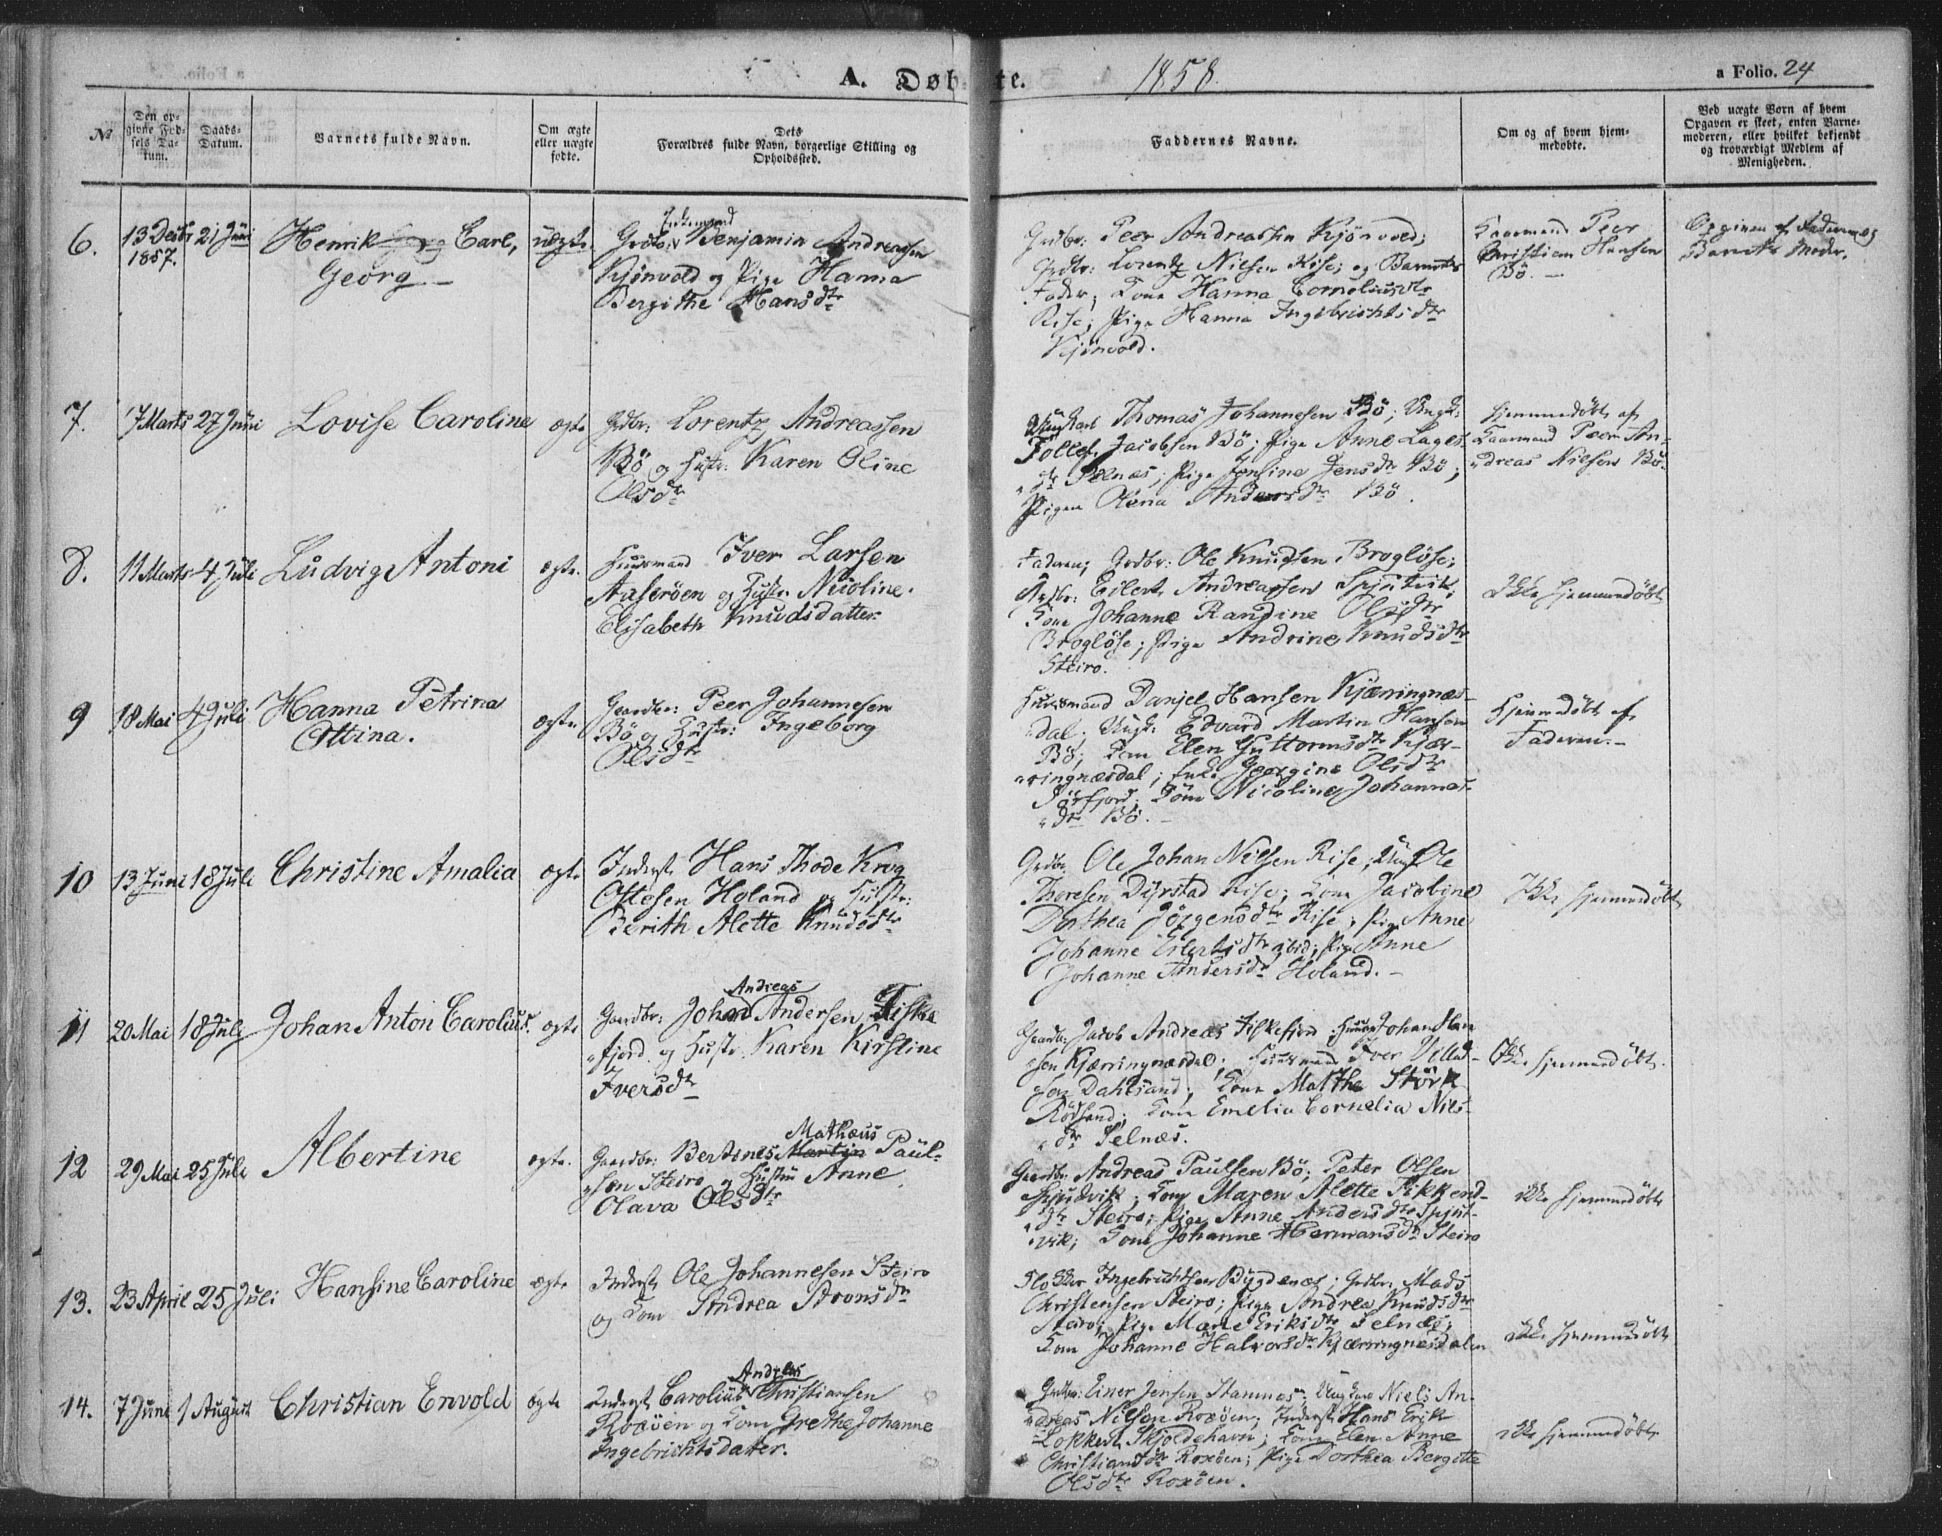 A. Døbte. 1858.
a Folio. 24
№
Den op-
givne Fød-
sels Da-
tum.
Daabs-
Datum.
Barnets fulde Navn.
Om ægte
eller uægte
fødte.
Dets
Forældres fulde Navn, borgerlige Stilling og
Opholdssted.
Faddernes Navne.
Om og af hvem hjem-
medøbte.
Ved uægte Børn af hvem
Opgaven er skeet, enten Barne-
moderen, eller hvilket bekjendt
og troværdigt Medlem af
Menigheden.
6. 13 Decbr 21 Juni Henrik Carl, uægte
1857.
Georg
Enkemand
Grdbr. Benjamin Andreassen
Kjönvold og Pige Hanna
Bergithe Hansdtr
Grdbr: Peer Andreassen Kjönvold;
Grdbr: Lorentz Nilsen Rise; og Barnets
Fader; Kone Hanna Corneliusdtr
Rise; Pige Hanna Ingebrichtsdtr
Kjönvold.
Gaarmand Peer
Christian Hansen
Bö.
Opgiven af
Barnets Moder.
7. 7 Marts 27 Juni Lovise Caroline ægte
Grdbr: Lorentz Andreassen
Bö og Hustr: Karen Oline
Olsdtr
Ungkarl Thomas Johannesen Bö; Ungk:
Tollef Jacobsen Bö; Pige Anne Lages-
dtr Selnæs; Pige Jensine Jensdtr Bö;
Pigen Olena Andersdtr Bö.
Hjemmedöbt af
Gaarmand Peer An-
dreas Nielsen Bö.
8. 11 Marts 4 Juli Ludvig Antoni ægte.
Huusmand Iver Larsen
Aaseröen og Hustr. Nicoline
Elisabeth Knudsdatter
Faderen; Grdbr: Ole Knudsen Broglöse;
Grdbr: Edert Andreassen Spjutvik;
Kone Johanne Randine Olsdtr
Broglöse; Pige Andrine Knudsdtr
Steiro.
Ikke hjemmedöbt
9 18 Mai 4 Juli Hanna Petrina ægte
Ottina.
Gaardbr: Peer Johannesen
Bö og Hustr: Ingeborg
Olsdtr
Huusmand Danjel Hansen Kjæringnæs-
dal. Ungk: Edvard Martin Hansen
Bö; Kone Elen Guttormsdtr Kjær-
ringnæsdal; Enke Georgine Olsdtr
Kone Nicoline Johannes-
dtr Bö.
Hjemmedöbt af
Faderen.
10 13 Juni 18 Juli Christine Amalia ægte
Inderst Hans Thode Krog
Ottesen Holand og Hustr:
Berith Alette Knudsdtr
Grdbr. Ole Johan Nilsen Rise; Ungk Ole
Thoresen Dyrstad Rise; Kone Jacobine
Dorthea Jörgensdtr Rise; Pige Anne
Johanne Edertsdtr ibid; Pige Anne
Johanne Andersdtr Holand.
Ikke hjemmedöbt
11 20 Mai 18 Juli Johan Anton Carolius. ægte
Andreas
Gaardbr: Johan Andersen Fiske-
fjord og Hustr. Karen Kirstine
Iversdtr
Gaardbr: Jacob Andreas Fiskefjord; Huusm Johan Han-
sen Kjærringnæsdal; Huusmand Iver Villad-
sen Dahlsand; Kone Malthe Störk
Rödsand; Kone Emelia Cornelia Niels-
dtr Selnæs.
Ikke hjemmedöbt.
12 29 Mai 25 Juli Albertine ægte.
Mathæus
Gaardbr: Bertines Martin Paul-
sen Steiro og Hustru Anne
Olava Olsdtr
Gaardbr Andreas Paulsen Bö; Peter Olsen
Spjudvik; Kone Maren Alette Sikkend-
dtr Steiro; Pige Anne Andersdtr Spjut-
vik; Kone Johanne Hermansdtr Steiro
ikke hjemmedöbt
13. 23 April 25 Juli Hansine Caroline ægte
Inderst Ole Johannesen Steiro
og Kone Andrea Aronsdtr
Klokker Ingebrichtsen Bygdenæs; Grdbr: Mads
Christensen Steiro; Pige Andrea Knudsdtr
Steiro; Pige Marie Eriksdtr Selnæs;
Kone Johanne Halvorsdtr Kjærringnesdalen
ikke hjemmedöbt
14. 7 Juni 1 August Christian Envold ægte
Andreas
Inderst Carolius Christiansen
Roxöen og Kone Grethe Johanne
Ingebrichtsdatter.
Grdbr: Einer Jensen Stamnes; Ungkarl Niels An-
dreas Nilsen Roxöen; Inderst Hans Erik
Lokkert Skjoldehavn; Kone Elen Anne
Christiansdtr Roxöen; Pige Dorthea Bergitte
Olsdtr Roxöen.
ikke hjemmedöbt